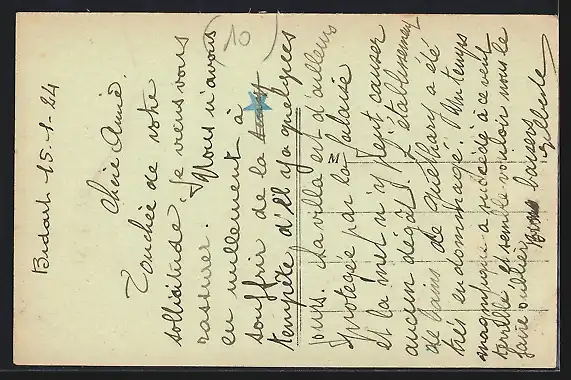 Bidart 15-1-24
(10)
Chère Amie.
Touchée de votre
sollicitude. Je viens vous
rassurer. Nous n'avons
eu nullement à
souffrir de la
tempête d'Il y a quelques
jours. La villa est d'ailleurs
protégée par la falaise
M
et la mer n'y peut causer
aucun dégât. L'établissement
de bains de Guéthary a été
très endommagé. Un temps
magnifique a succédé à ce vent
terrible et semble vouloir nous le
faire oublier. Bons baisers